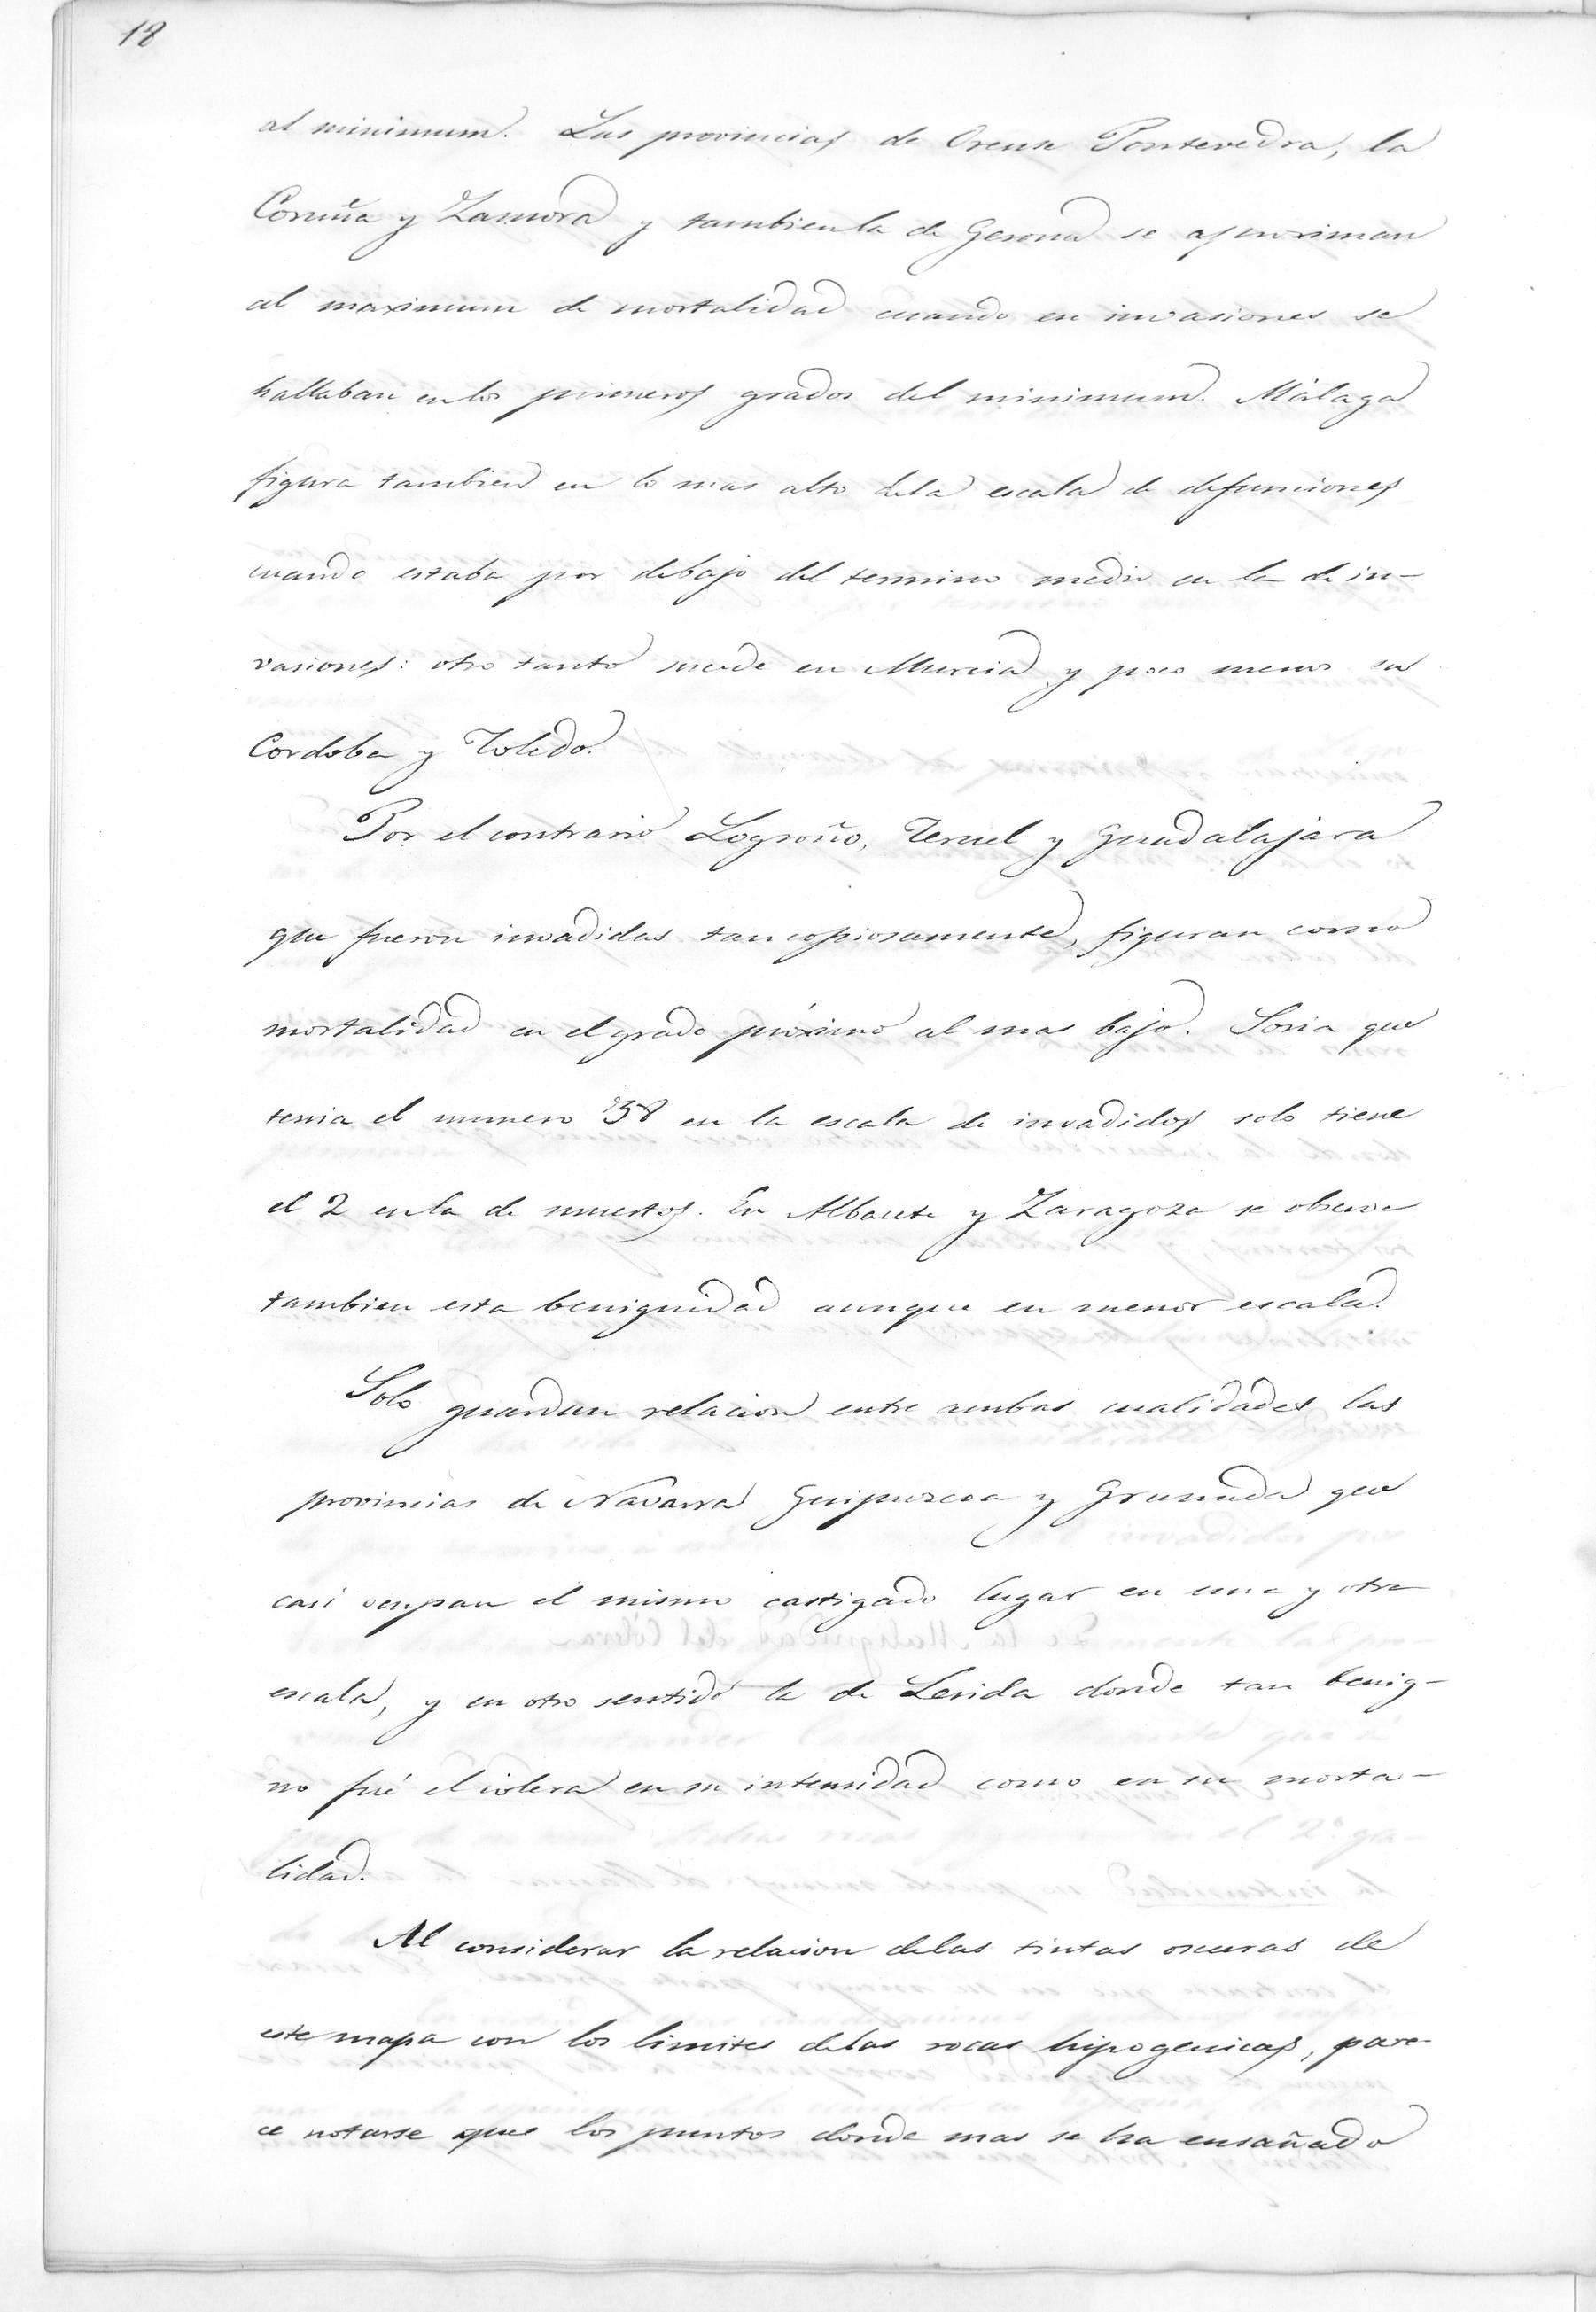 18
al minimum. Las provincias de Orense Pontevedra, la
Coruña y Zamora y tambien la de Gerona se aproximan
al maximum de mortalidad cuando en invasiones se
hallaban en los primeros grados del minimum. Málaga
figura tambien en lo mas alto dela escala de defunciones
cuando estaba por debajo del termino medio en la de in-
vasiones: otro tanto sucede en Murcia y poco menos en
Cordoba y Toledo.
Por el contrario Logroño, Teruel y Guadalajara
que fueron invadidas tan copiosamente, figuran como
mortalidad en el grado próximo al mas bajo. Soria que
tenia el numero 38 en la escala de invadidos solo tiene
el 2 en la de muertos. En Albacete y Zaragoza se observa
tambien esta benignidad aunque en menor escala.
Solo guardan relacion entre ambas cualidades las
provincias de Navarra Guipuzcoa y Granada que
casi ocupan el mismo castigado lugar en una y otra
escala, y en otro sentido la de Lerida donde tan benig-
no fué el colera en su intensidad como en su morta-
lidad.
Al considerar la relacion delas tintas oscuras de
este mapa con los limites delas rocas hipogenicas, pare-
ce notarse que los puntos donde mas se ha ensañado